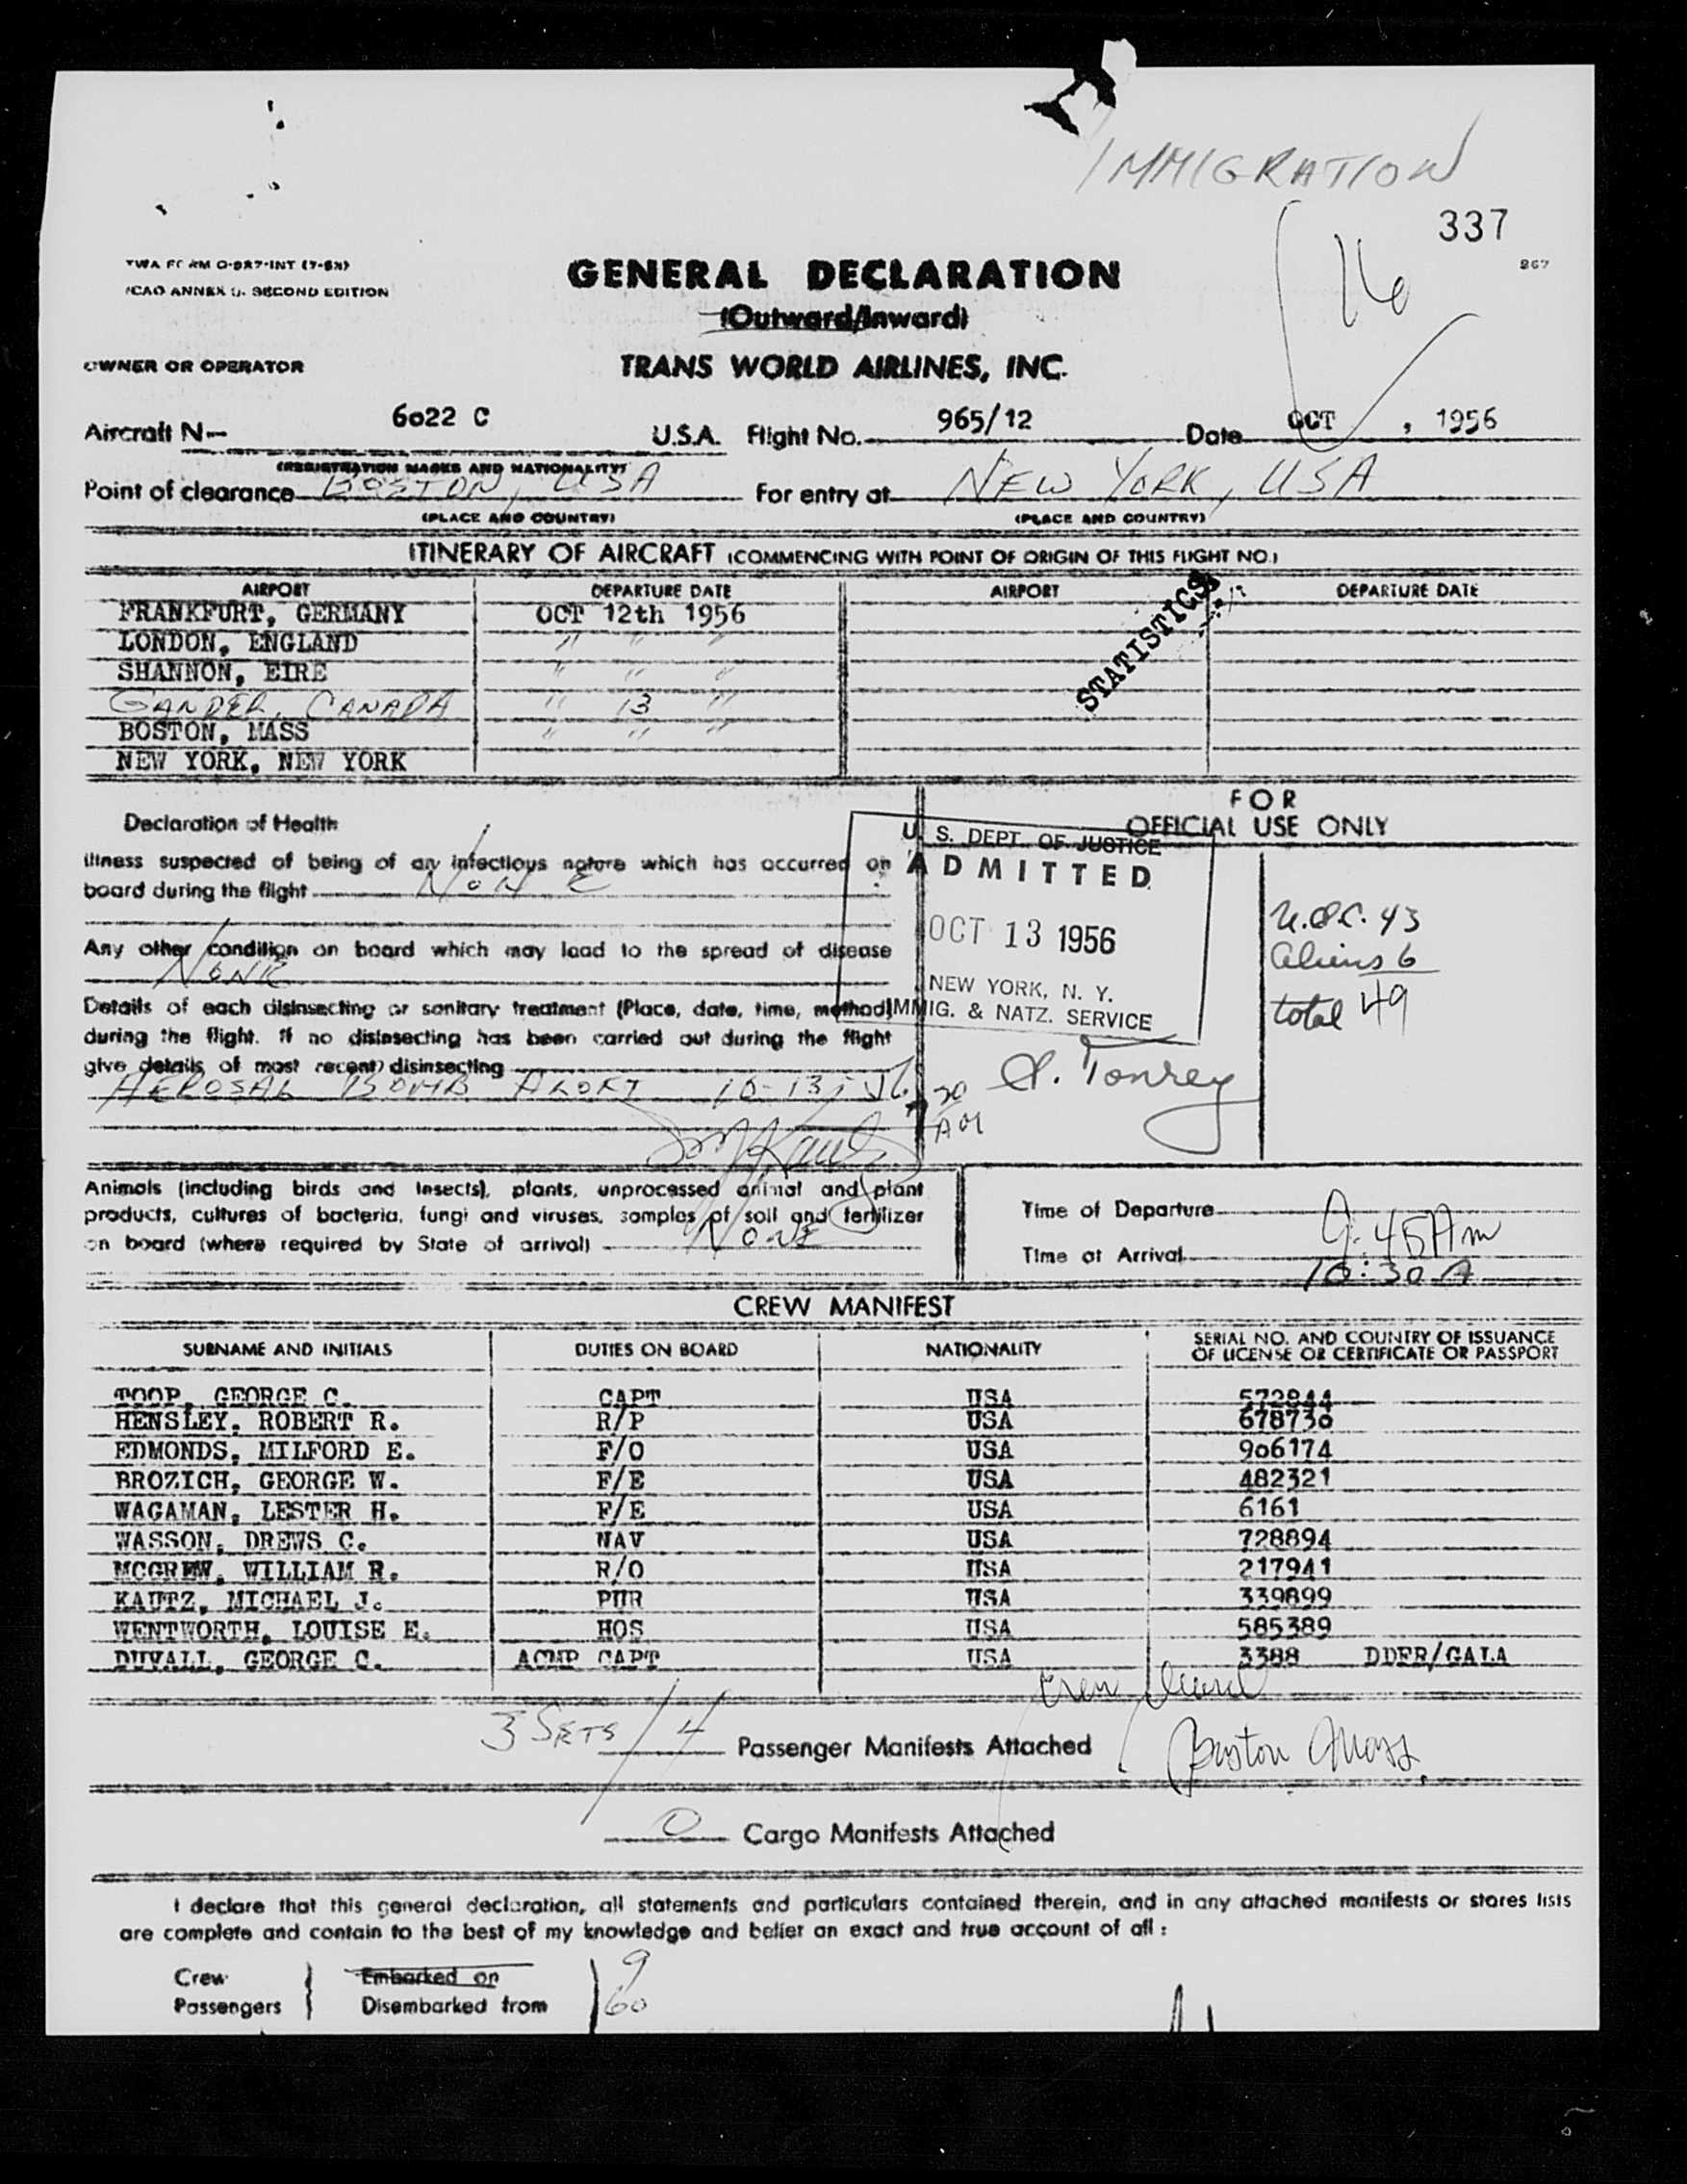 IMMIGRATION
337
16
267
TWA FORM O-987-INT (7-53)
ICAO ANNEX 9. SECOND EDITION
GENERAL DECLARATION
(Outward/Inward)
OWNER OR OPERATOR
TRANS WORLD AIRLINES, INC.
Aircraft N- 6022 C U.S.A. Flight No. 965/12 Date OCT , 1956
(REGISTRATION MARKS AND NATIONALITY)
Point of clearance BOSTON, USA For entry at NEW YORK, USA
(PLACE AND COUNTRY) (PLACE AND COUNTRY)
ITINERARY OF AIRCRAFT (COMMENCING WITH POINT OF ORIGIN OF THIS FLIGHT NO.)
AIRPORT DEPARTURE DATE AIRPORT DEPARTURE DATE
FRANKFURT, GERMANY OCT 12th 1956
LONDON, ENGLAND " " "
SHANNON, EIRE " " "
GANDER, CANADA " 13 "
BOSTON, MASS " " "
NEW YORK, NEW YORK
STATISTICS
FOR
OFFICIAL USE ONLY
Declaration of Health
Illness suspected of being of an infectious nature which has occurred on
board during the flight NONE
Any other condition on board which may lead to the spread of disease
NONE
Details of each disinsecting or sanitary treatment (Place, date, time, method)
during the flight. If no disinsecting has been carried out during the flight
give details of most recent disinsecting
AEROSAL BOMB ALOFT 10-13-56
U. S. DEPT. OF JUSTICE
ADMITTED
OCT 13 1956
NEW YORK, N. Y.
IMMIG. & NATZ. SERVICE
U.S.C. 43
Aliens 6
total 49
Animals (including birds and insects), plants, unprocessed animal and plant
products, cultures of bacteria, fungi and viruses, samples of soil and fertilizer
on board (where required by State of arrival) NONE
Time of Departure 9:45 Am
Time of Arrival 10:30 A
CREW MANIFEST
SURNAME AND INITIALS DUTIES ON BOARD NATIONALITY SERIAL NO. AND COUNTRY OF ISSUANCE
OF LICENSE OR CERTIFICATE OR PASSPORT
TOOP, GEORGE C. CAPT USA 572844
HENSLEY, ROBERT R. R/P USA 678730
EDMONDS, MILFORD E. F/O USA 906174
BROZICH, GEORGE W. F/E USA 482321
WAGAMAN, LESTER H. F/E USA 6161
WASSON, DREWS C. NAV USA 728894
MCGREW, WILLIAM R. R/O USA 217941
KAUTZ, MICHAEL J. PUR USA 339899
WENTWORTH, LOUISE E. HOS USA 585389
DUVALL, GEORGE C. ACMP CAPT USA 3388 DDFR/GALA
Crew
Boston Mass.
3 SETS / 4 Passenger Manifests Attached
0 Cargo Manifests Attached
I declare that this general declaration, all statements and particulars contained therein, and in any attached manifests or stores lists
are complete and contain to the best of my knowledge and belief an exact and true account of all :
Crew Embarked on 9
Passengers Disembarked from 60